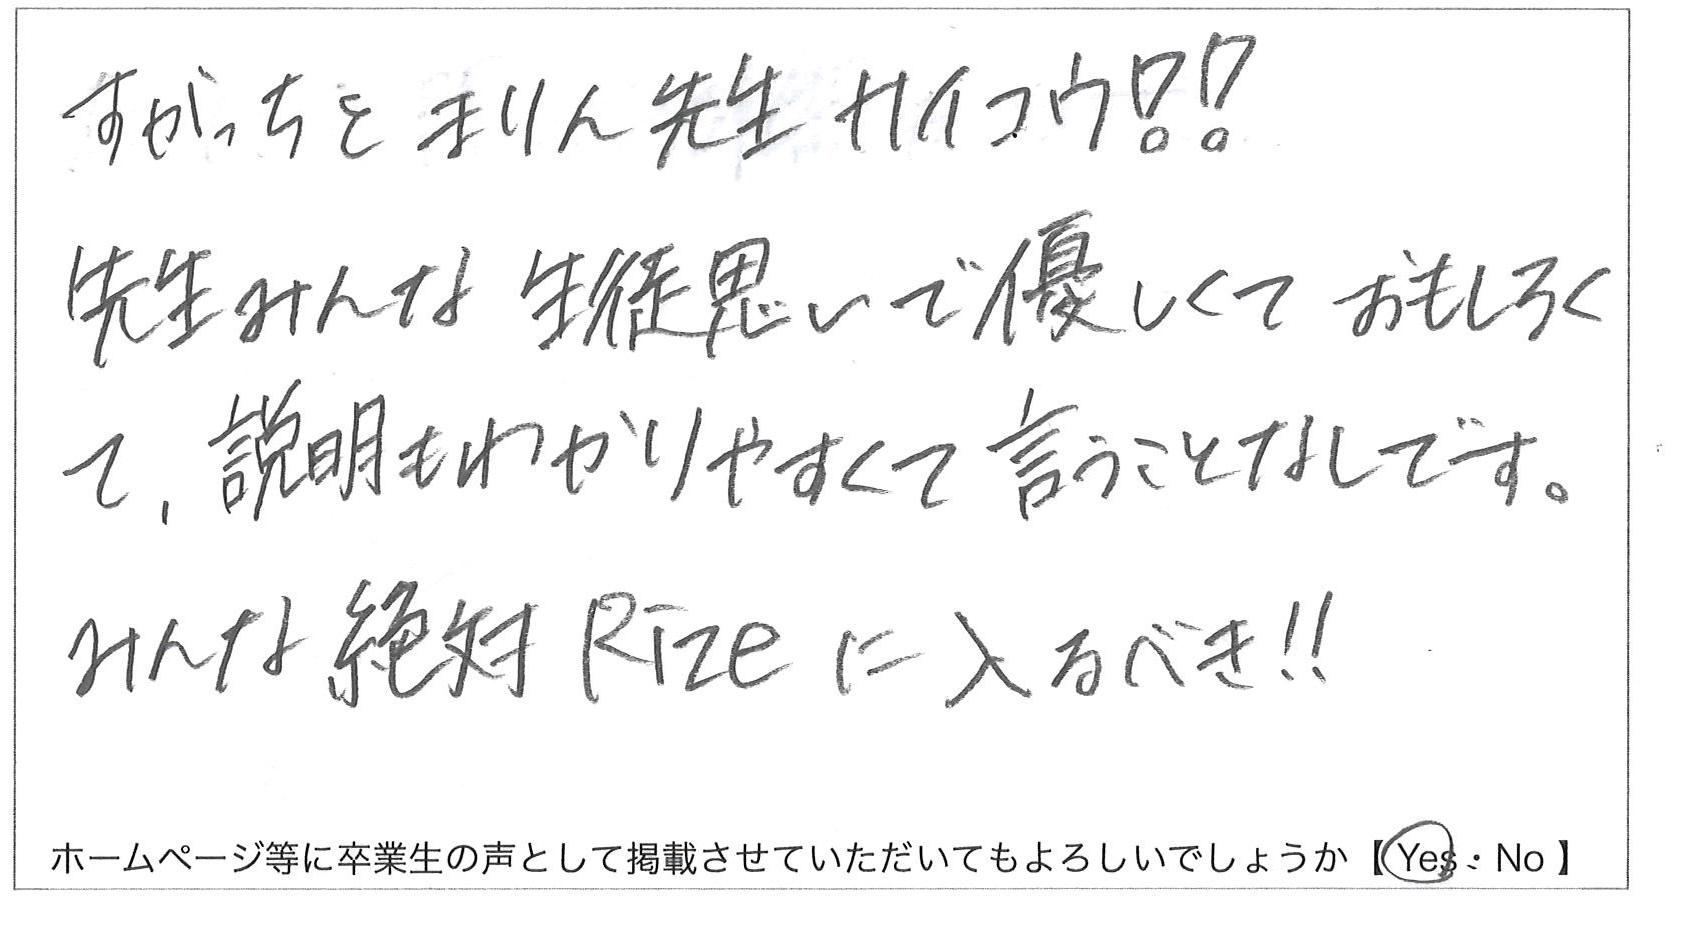 すがっちとまりん先生サイコウ!!
先生みんな生徒思いで優しくておもしろく
て、説明もわかりやすくて言うことなしです。
みんな絶対Rizeに入るべき!!
ホームページ等に卒業生の声として掲載させていただいてもよろしいでしょうか【Yes・No】